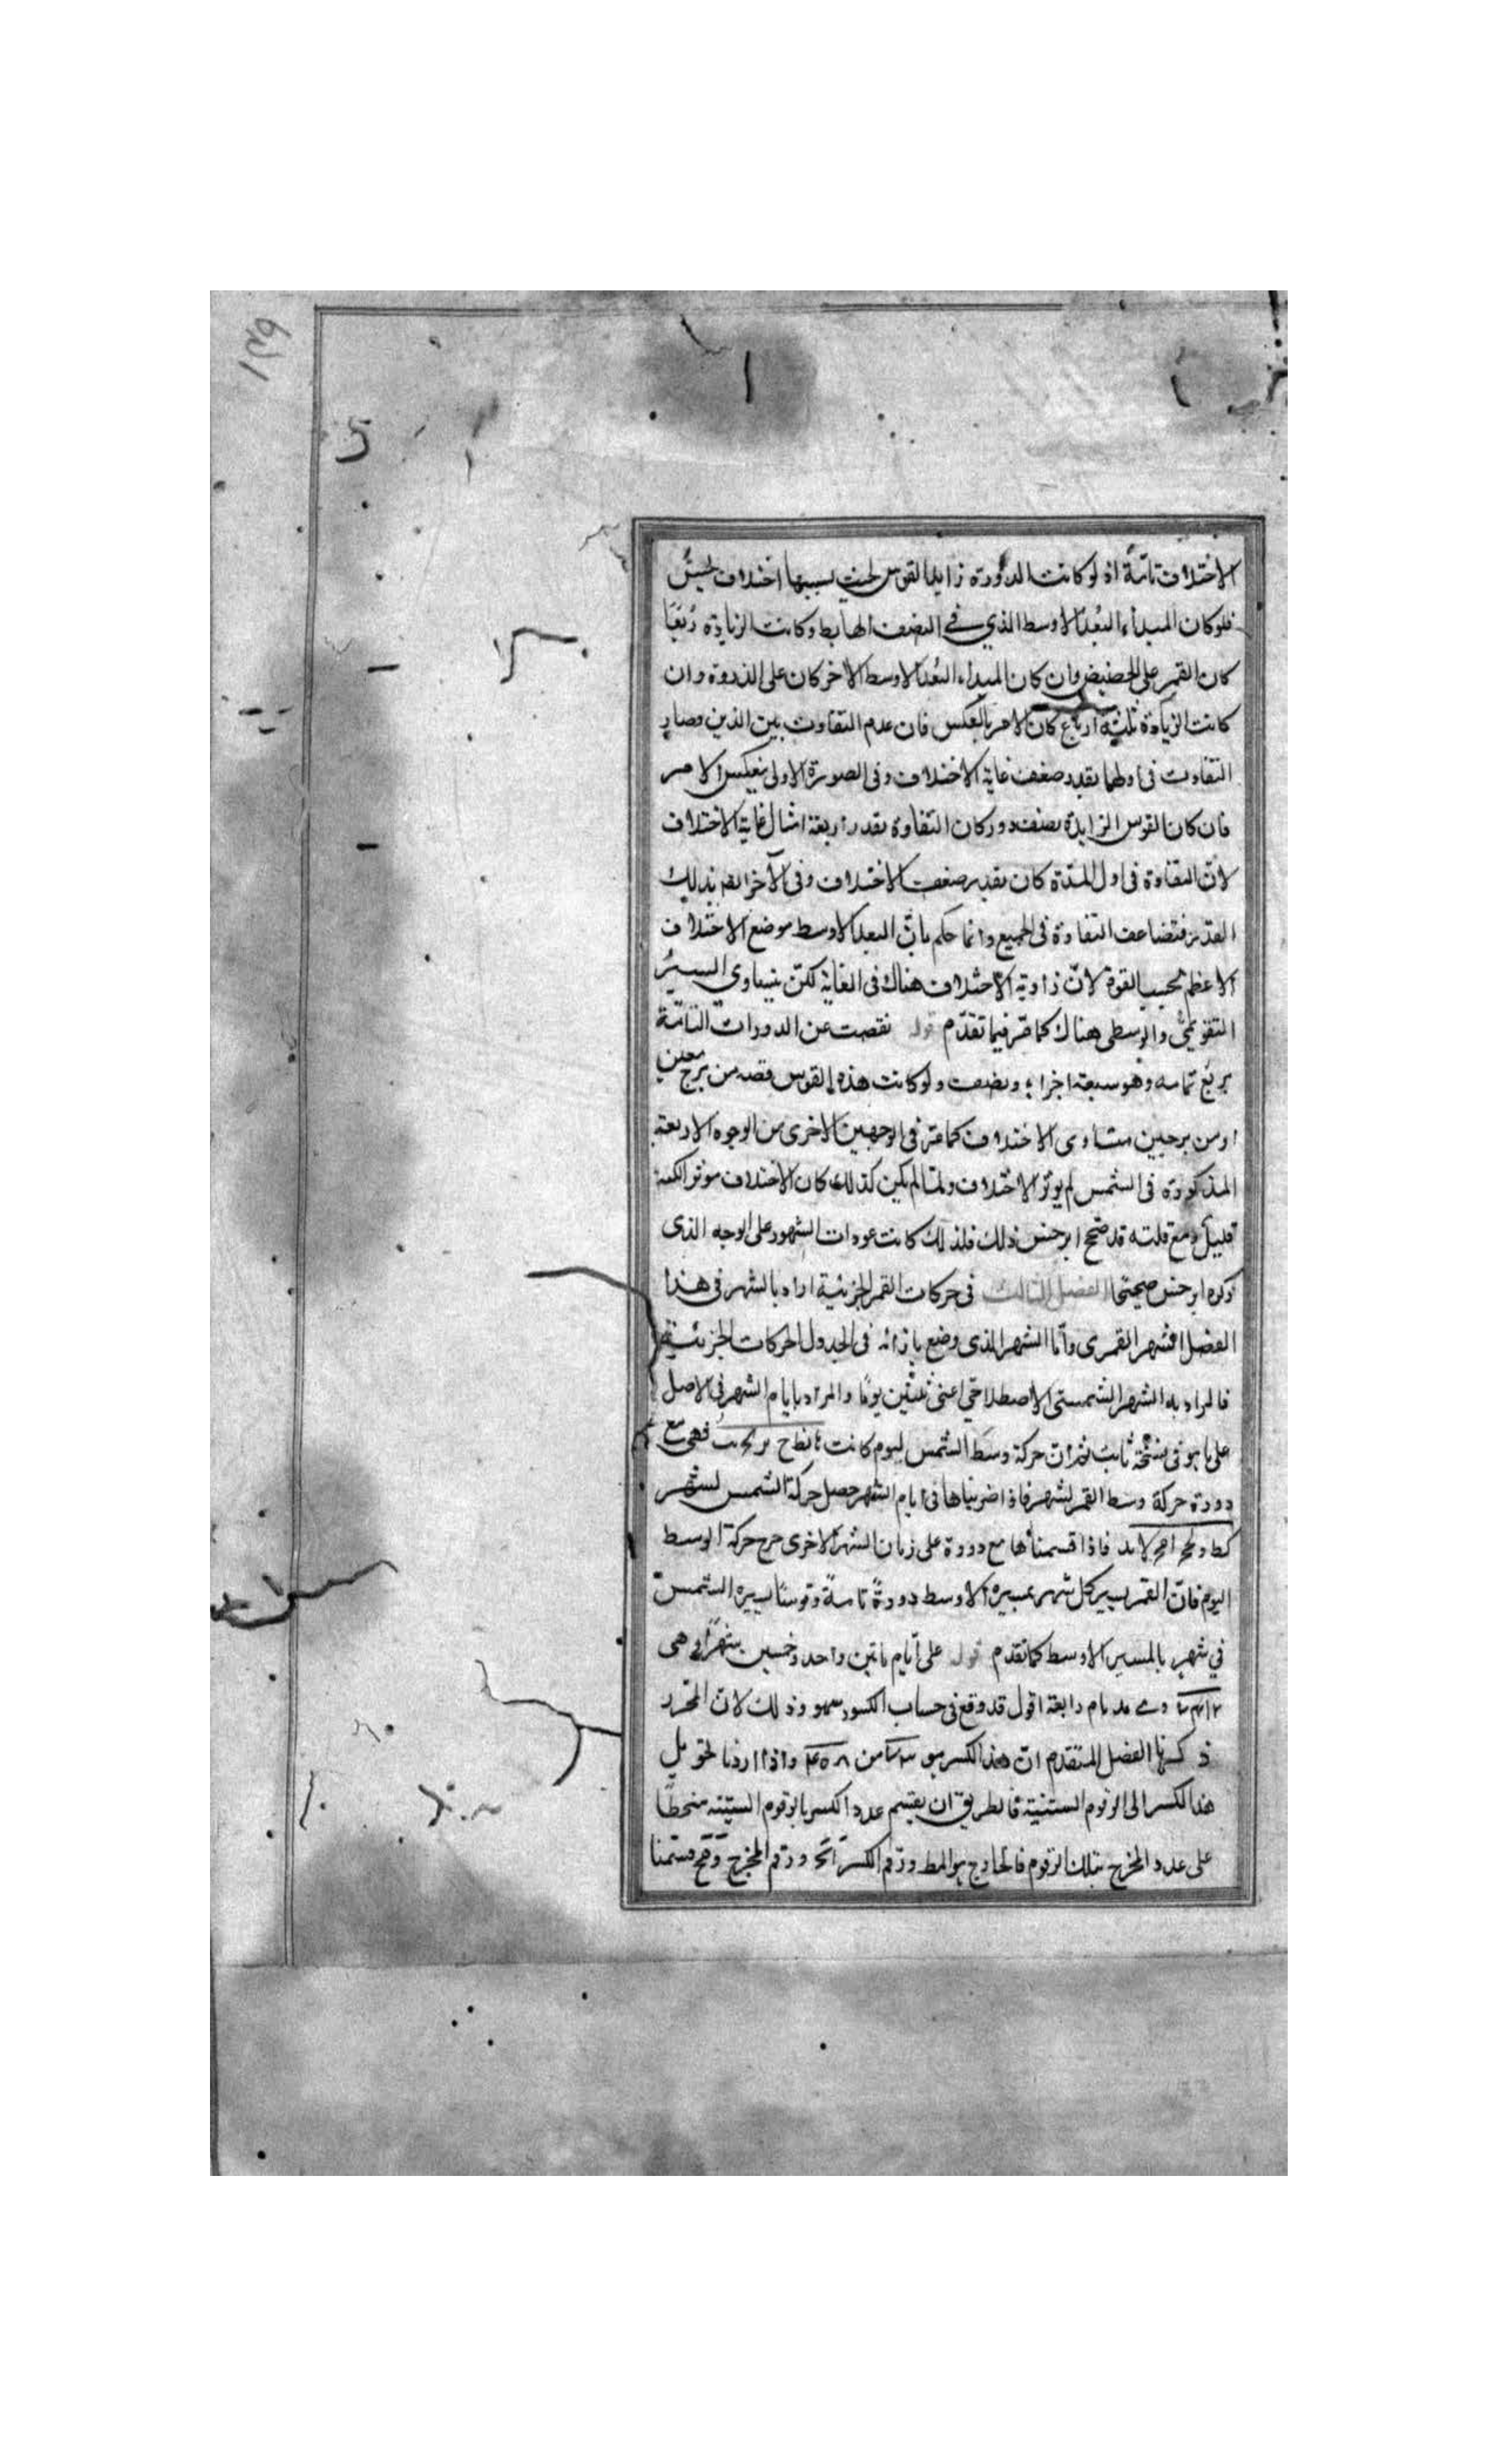 ١٤٩
الاختلاف تامة اذ لو كانت الدورة زايدا لقوس لحيث بسببها اختلاف لحيث
فلو كان المبداء البعد الاوسط الذي في النصف الهابط وكانت الزيادة ربعا
كان القمر على الحضيض وان كان المبداء البعد الاوسط الاخر كان على الذروة وان
كانت الزيادة ثلثة ارباع كان الامر بالعكس فان عدم التفاوت بين الذين وصار
التفاوت في اولهما بقدر ضعف غاية الاختلاف وفي الصورة الاولى ينعكس الامر
فان كان القوس الزايدة نصف دور كان التفاوة بقدر اربعة امثال غاية الاختلاف
لان التفاوة في اول المدة كان بقدر ضعف الاختلاف وفي الآخر ايضا بذلك
القدر فتضاعف التفاوة في الجميع وانما حكم بان البعد الاوسط موضع الاختلاف
الاعظم بحسب القوة لان زاوية الاختلاف هناك في الغاية لكن يتساوى السير
التقويمي والوسطى هناك كما مر فيما تقدم قوله نقصت عن الدورات التامة
بربع تمامه وهو سبعة اجزاء ونصف ولو كانت هذه القوس قصه من برج معين
او من برجين متساوى الاختلاف كما مر في الوجهين الاخرى من الوجوه الاربعة
المذكورة في الشمس لم يوثر الاختلاف ولما لم يكن كذلك كان الاختلاف موثرا لكنه
قليل ومع قلته قد صحح ابرخس ذلك فلذلك كانت عودات الشهور على الوجه الذى
ذكره ابرخس صحيحا الفصل الثالث في حركات القمر الجزئية اراد بالشهر في هذا
الفصل الشهر القمرى واما الشهر الذى وضع بازائه في الجدول الحركات الجزئية
فالمراد به الشهر الشمسى الاصطلاحي اعنى ثلثين يوما والمراد بايام الشهر في الاصل
على ما هو في نسخة ثابت حركة وسط الشمس ليوم كانت فهى مع
دورة حركة وسط القمر لشهر فاذا ضربناها في ايام الشهر حصل حركة الشمس لشهر
فاذا قسمناها مع دورة على زمان الشهر الاخرى خرج حركة الوسط
اليوم فان القمر يسير كل شهر بمسيره الاوسط دورة تامة وقوسا يسيره الشمس
في شهر بالمسير الاوسط كما تقدم قوله على ايام ماتين واحد وخمسين شهرا وهى
رابعة اقول قد وقع في حساب الكسور سهو وذلك لان المقرر
ذكرنا الفصل المتقدم ان هذا الكسر هو من واذا اردنا تحويل
هذا الكسر الى الرقوم الستينية فالطريق ان يقسم عدد الكسر بالرقوم الستينة منحطا
على عدد المخرج بتلك الرقوم فالخارج هو المط ورقم الكسر ورقم المخرج قسمنا